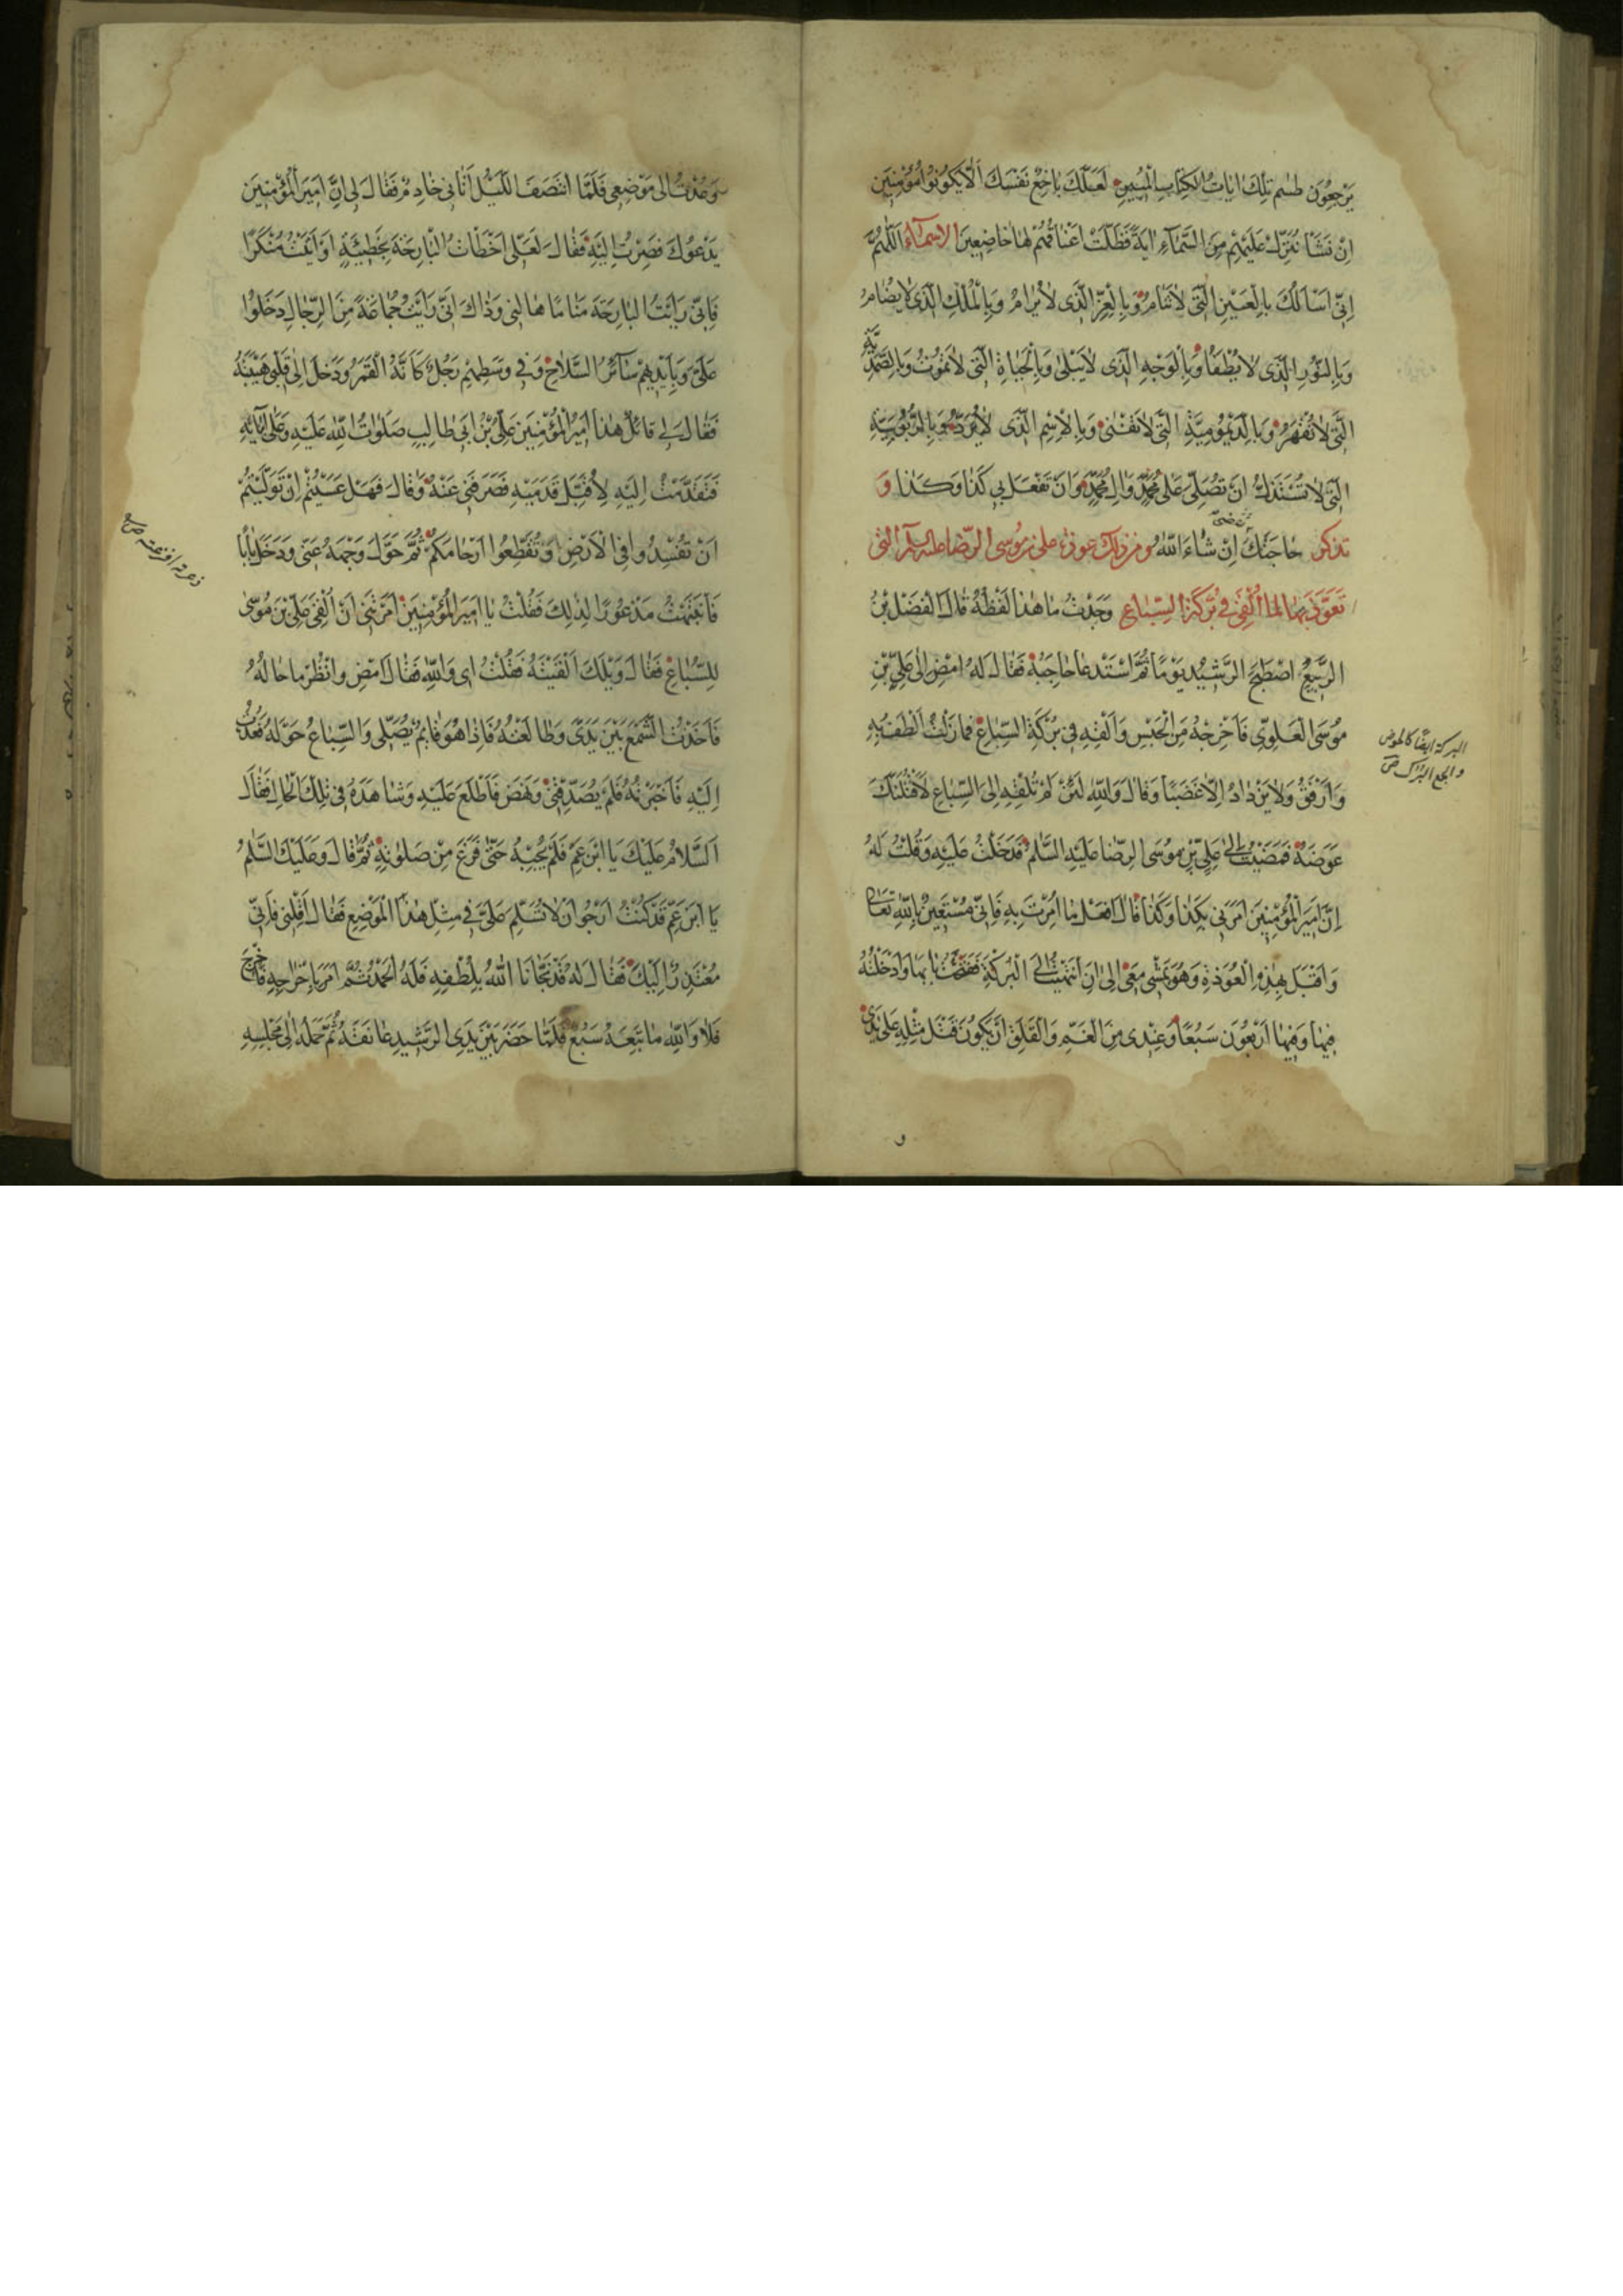 يَرْجِعُونَ طسم تِلْكَ ايَاتُ الْكِتَابِ الْمُبِينِ لَعَلَّكَ بَاخِعٌ نَفْسَكَ اَلَّا يَكُونُوا مُؤْمِنِينَ
اِنْ نَشَأْ نُنَزِّلْ عَلَيْهِمْ مِنَ السَّمَاءِ ايَةً فَظَلَّتْ اَعْنَاقُهُمْ لَهَا خَاضِعِينَ الاسماء اَللّهُمَّ
اِنِّى اَسْاَلُكَ بِالْعَيْنِ الَّتى لَا تَنَامُ وَبِالْعِزِّ الَّذى لَا يُرَامُ وَبِالْمُلْكِ الَّذى لَا يُضَامُ
وَبِالنُّورِ الَّذى لَا يُطْفَأُ وَبِالْوَجْهِ الَّذى لَا يَبْلى وَبِالْحَيَاةِ الَّتى لَا تَمُوتُ وَبِالصَّمَدِيَّةِ
الَّتى لَا تُقْهَرُ وَبِالدَّيْمُومِيَّةِ الَّتى لَا تَفْنى وَبِالْاِسْمِ الَّذى لَا يُرَدُّ وَبِالرُّبُوبِيَّةِ
الَّتى لَا تُسْتَذَلُّ اَنْ تُصَلِّىَ عَلى مُحَمَّدٍ وَالِ مُحَمَّدٍ وَاَنْ تَفْعَلَ بى كَذَا وَكَذَا وَ
تذكر حَاجَتَكَ تُقضى اِنْ شَاءَ اللهُ ومن ذلك عوذة على بن موسى الرضا عليه السلم التى
تَعَوَّذَ بِهَا لما اُلْقِىَ فى بُرْكَةِ السِّبَاعِ وَجَدْتُ مَا هذَا لَفْظُهُ قَالَ الْفَضْلُ بْنُ
الرَّبِيعِ اصْطَبَحَ الرَّشِيدُ يَوْمًا ثُمَّ اسْتَدْعَا حَاجِبَهُ فَقَالَ لَهُ امْضِ اِلى عَلِىِّ بْنِ
مُوسَى الْعَلَوِىِّ فَاَخْرِجْهُ مِنَ الْحَبْسِ وَاَلْقِهِ فى بُرْكَةِ السِّبَاعِ فَمَا زِلْتُ اَلْطُفُ بِهِ
وَاَرْفَقُ وَلَا يَزْدَادُ اِلَّا غَضَبًا وَقَالَ وَاللهِ لَئِنْ لَمْ تُلْقِهِ اِلَى السِّبَاعِ لَاُلْقِيَنَّكَ
عِوَضَهُ فَمَضَيْتُ اِلى عَلِىِّ بْنِ مُوسَى الرِّضَا عَلَيْهِ السَّلمُ فَدَخَلْتُ عَلَيْهِ وَقُلْتُ لَهُ
اِنَّ اَمِيرَ الْمُؤْمِنِينَ اَمَرَنى بِكَذَا وَكَذَا قَالَ افْعَلْ مَا اُمِرْتَ بِهِ فَاِنِّى مُسْتَعِينٌ بِاللهِ تَعَالى
وَاَقْبَلَ بِهذِهِ الْعُوذَةِ وَهُوَ يَمْشى مَعِى اِلى اَنِ انْتَهَيْتُ اِلَى الْبُرْكَةِ فَفَتَحْتُ بَابَهَا وَاَدْخَلْتُهُ
فِيهَا وَفِيهَا اَرْبَعُونَ سَبُعًا وَعِنْدى مِنَ الْغَمِّ وَالْقَلَقِ اَنْ يَكُونَ قَتْلُ مِثْلِهِ عَلى يَدَىَّ
و
البركة ايضا كالحوض
والجمع البرك ص
وَعُدْتُ اِلى مَوْضِعى فَلَمَّا انْتَصَفَ اللَّيْلُ اَتَانى خَادِمٌ فَقَالَ لى اِنَّ اَمِيرَ الْمُؤْمِنِينَ
يَدْعُوكَ فَصِرْتُ اِلَيْهِ فَقَالَ لَعَلّى اَخْطَأْتُ الْبَارِحَةَ بِخَطِيئَةٍ اَوْ اَتَيْتُ مُنْكَرًا
فَاِنّى رَاَيْتُ الْبَارِحَةَ مَنَامًا هَالَنى وَذَاكَ اَنّى رَاَيْتُ جَمَاعَةً مِنَ الرِّجَالِ دَخَلُوا
عَلَىَّ وَبِاَيْدِيهِمْ سَائِرُ السِّلَاحِ وَفى وَسَطِهِمْ رَجُلٌ كَاَنَّهُ الْقَمَرُ وَدَخَلَ اِلى قَلْبى هَيْبَتُهُ
فَقَالَ لى قَائِلٌ هذَا اَمِيرُ الْمُؤْمِنِينَ عَلِىُّ بْنُ اَبى طَالِبٍ صَلَوَاتُ اللهِ عَلَيْهِ وَعَلى اَبَائِهِ
فَتَقَدَّمْتُ اِلَيْهِ لِاُقَبِّلَ قَدَمَيْهِ فَصَرَفَنى عَنْهُ وَقَالَ فَهَلْ عَسَيْتُمْ اِنْ تَوَلَّيْتُمْ
اَنْ تُفْسِدُوا فِى الْاَرْضِ وَتُقَطِّعُوا اَرْحَامَكُمْ ثُمَّ حَوَّلَ وَجْهَهُ عَنّى وَدَخَلَ بَابًا
فَانْتَبَهْتُ مَذْعُورًا لِذلِكَ فَقُلْتُ يَا اَمِيرَ الْمُؤْمِنِينَ اَمَرْتَنى اَنْ اُلْقِىَ عَلِىَّ بْنَ مُوسى
لِلسِّبَاعِ فَقَالَ وَيْلَكَ اَلْقَيْتَهُ فَقُلْتُ اِى وَاللهِ فَقَالَ امْضِ وَانْظُرْ مَا حَالُهُ
فَاَخَذْتُ الشَّمْعَ بَيْنَ يَدَىَّ وَطَالَعْتُهُ فَاِذَا هُوَ قَائِمٌ يُصَلّى وَالسِّبَاعُ حَوْلَهُ فَعُدْتُ
اِلَيْهِ فَاَخْبَرْتُهُ فَلَمْ يُصَدِّقْنى وَنَهَضَ فَاطَّلَعَ عَلَيْهِ وَشَاهَدَهُ فى تِلْكَ الْحَالِ فَقَالَ
اَلسَّلَامُ عَلَيْكَ يَا ابْنَ عَمِّ فَلَمْ يُجِبْهُ حَتّى فَرَغَ مِنْ صَلوتِهِ ثُمَّ قَالَ وَعَلَيْكَ السَّلمُ
يَا ابْنَ عَمِّ قَدْ كُنْتُ اَرْجُو اَنْ لَا تُسَلِّمَ عَلَىَّ فى مِثْلِ هذَا الْمَوْضِعِ فَقَالَ اَقِلْنى فَاِنّى
مُعْتَذِرٌ اِلَيْكَ فَقَالَ لَهُ قَدْ نَجَّانَا اللهُ بِلُطْفِهِ فَلَهُ الْحَمْدُ ثُمَّ اَمَرَ بِاِخْرَاجِهِ فَاُخْرِجَ
فَلَا وَاللهِ مَا تَبِعَهُ سَبُعٌ فَلَمَّا حَضَرَ بَيْنَ يَدَىِ الرَّشِيدِ عَانَقَهُ ثُمَّ حَمَلَهُ اِلى مَجْلِسِهِ
ذعرته افزعته ص